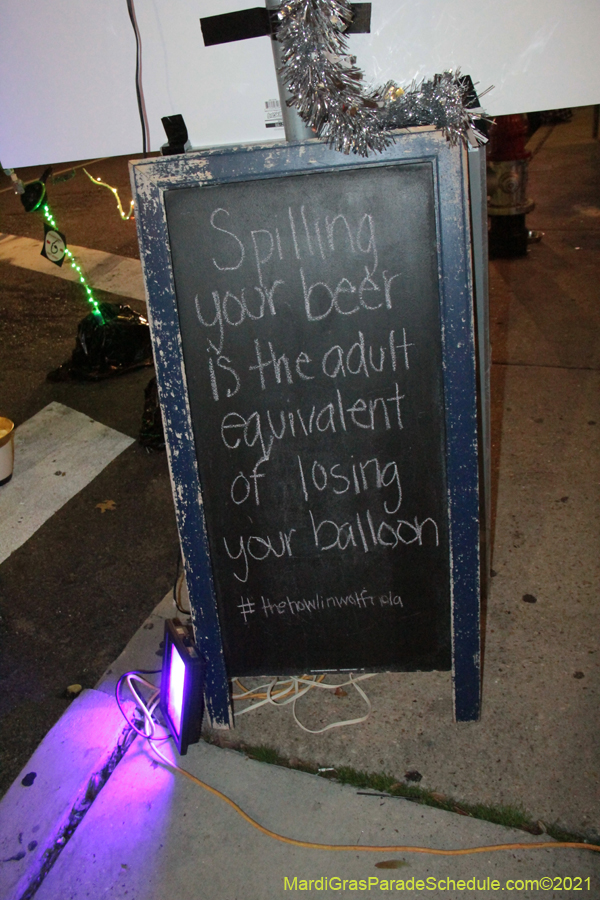 Spilling
your beer
is the adult
equivalent
of losing
your balloon
#thehowlinwolfnola
MardiGrasParadeSchedule.com©2021